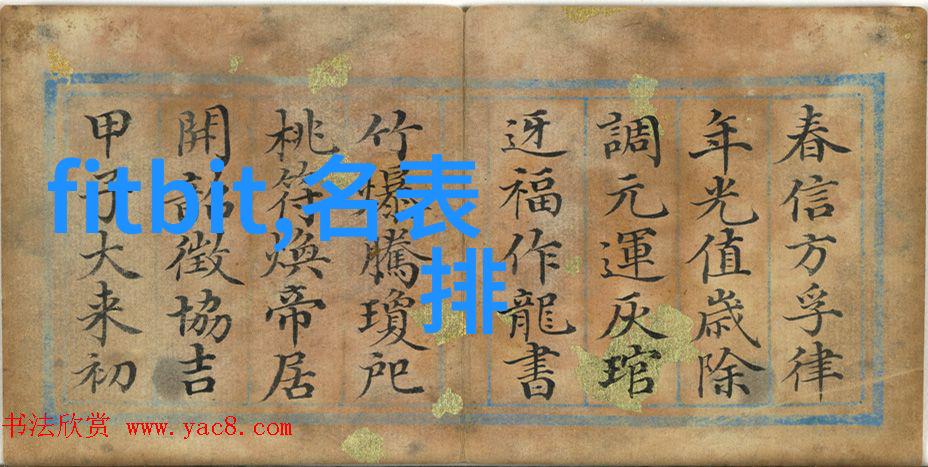 春信方孚律
年光值歲除
調元運灰琯
迓福作龍書
竹爆騰瓊戺
桃符煥帝居
開韶徵協吉
甲子大来初
fitbit,名表
排
书法欣赏 www.yac8.com